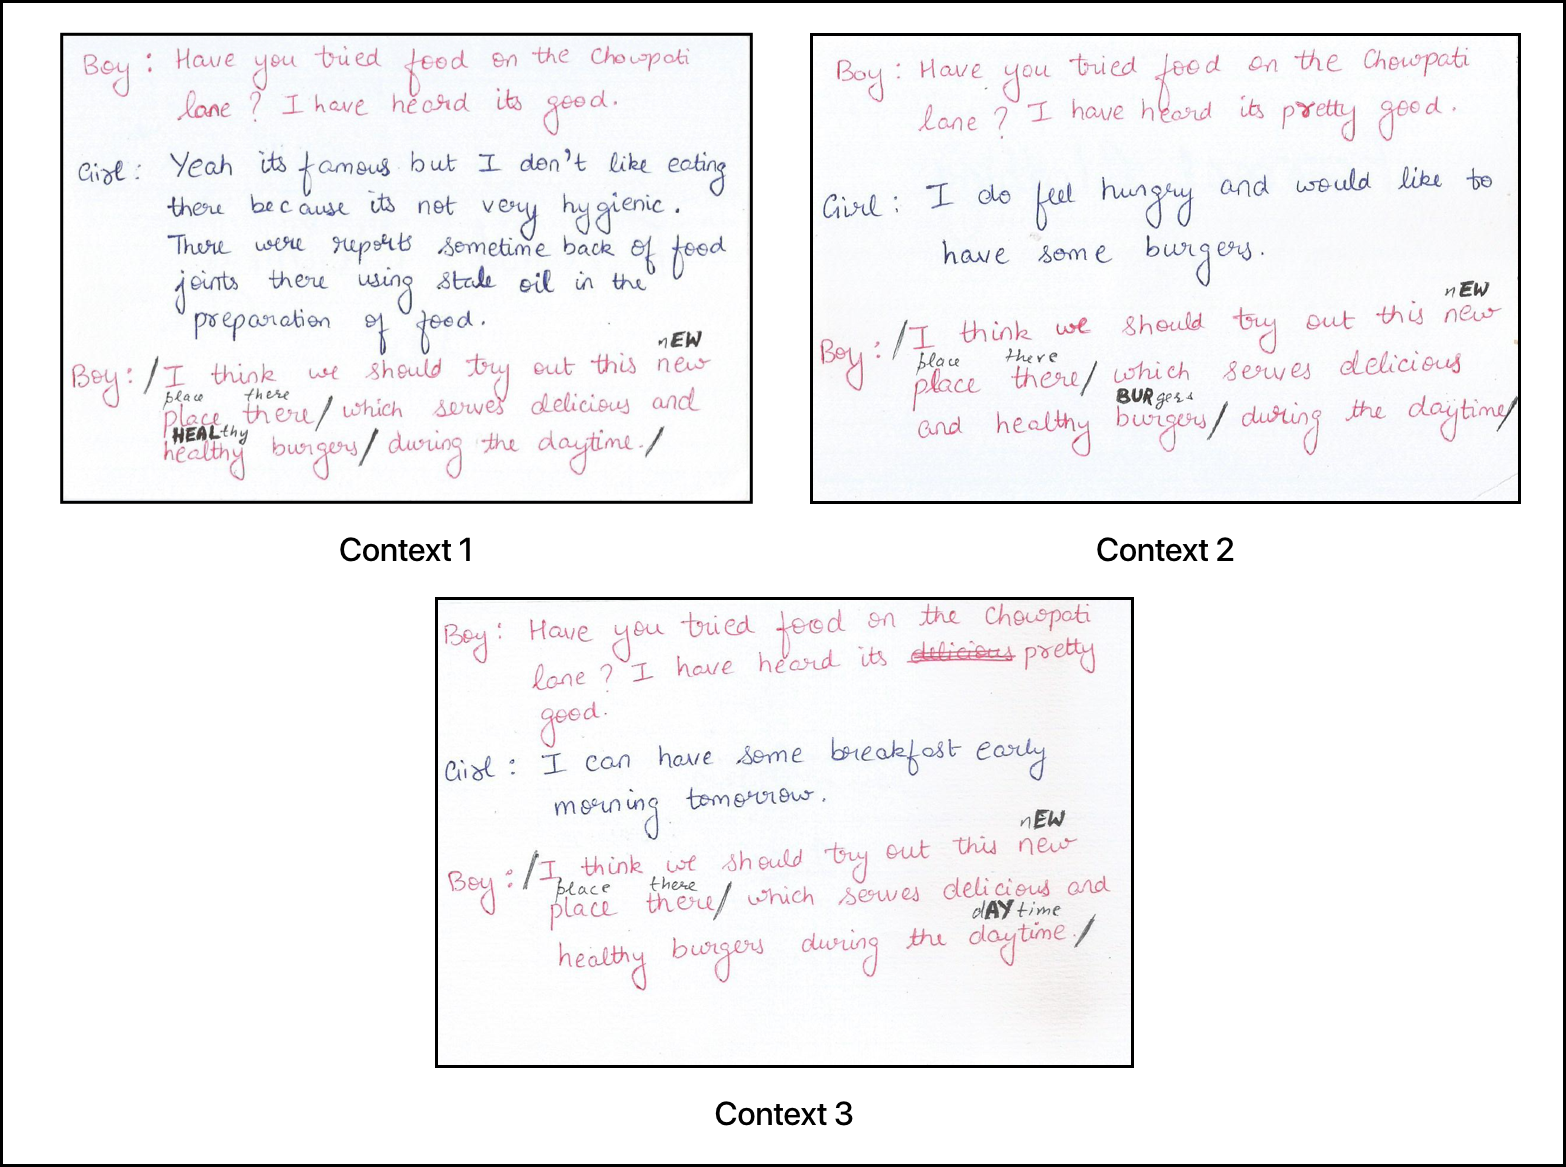 Boy : Have you tried food on the Chowpati
lane ? I have heard its good.
Girl : Yeah its famous but I don't like eating
there because its not very hygienic.
There were reports sometime back of food
joints there using stale oil in the
preparation of food.
nEW
Boy : / I think we should try out this new
place there
place there / which serves delicious and
HEALthy
healthy burgers / during the daytime. /
Context 1
Boy : Have you tried food on the Chowpati
lane ? I have heard its pretty good.
Girl : I do feel hungry and would like to
have some burgers.
nEW
Boy : / I think we should try out this new
place there
place there / which serves delicious
BURgers
and healthy burgers / during the daytime /
Context 2
Boy : Have you tried food on the Chowpati
lane ? I have heard its delicious pretty
good.
Girl : I can have some breakfast early
morning tomorrow.
nEW
Boy : / I think we should try out this new
place there
place there / which serves delicious and
dAYtime
healthy burgers during the daytime. /
Context 3